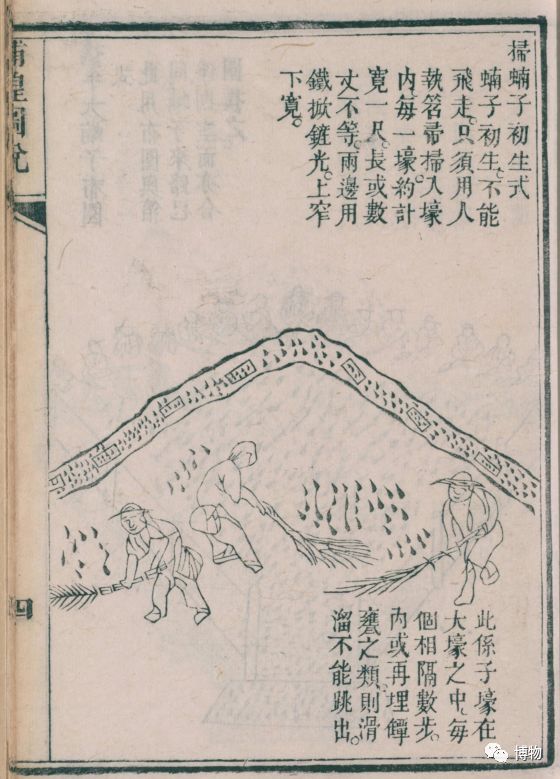 掃蝻子初生式
蝻子初生。不能
飛走。只須用人
執笤帚掃入壕
內。每一壕約計
寬一尺。長或數
丈不等。兩邊用
鐵掀鏟光。上窄
下寬。
此係子壕在
大壕之中。每
個相隔數步。
內或再埋罈
甕之類。則滑
溜不能跳出。
捕蝗圖說
四
博物